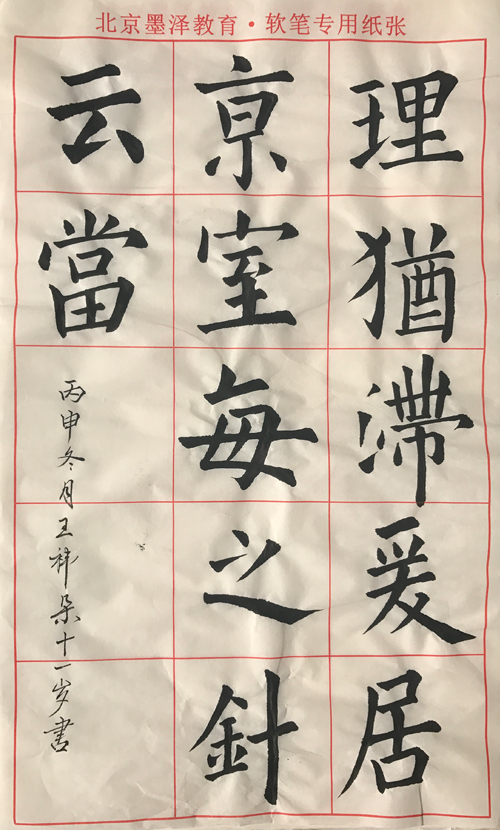 北京墨泽教育·软笔专用纸张
理猶滯爰居
京室每之針
云當
丙申冬月王祎朵十一岁書